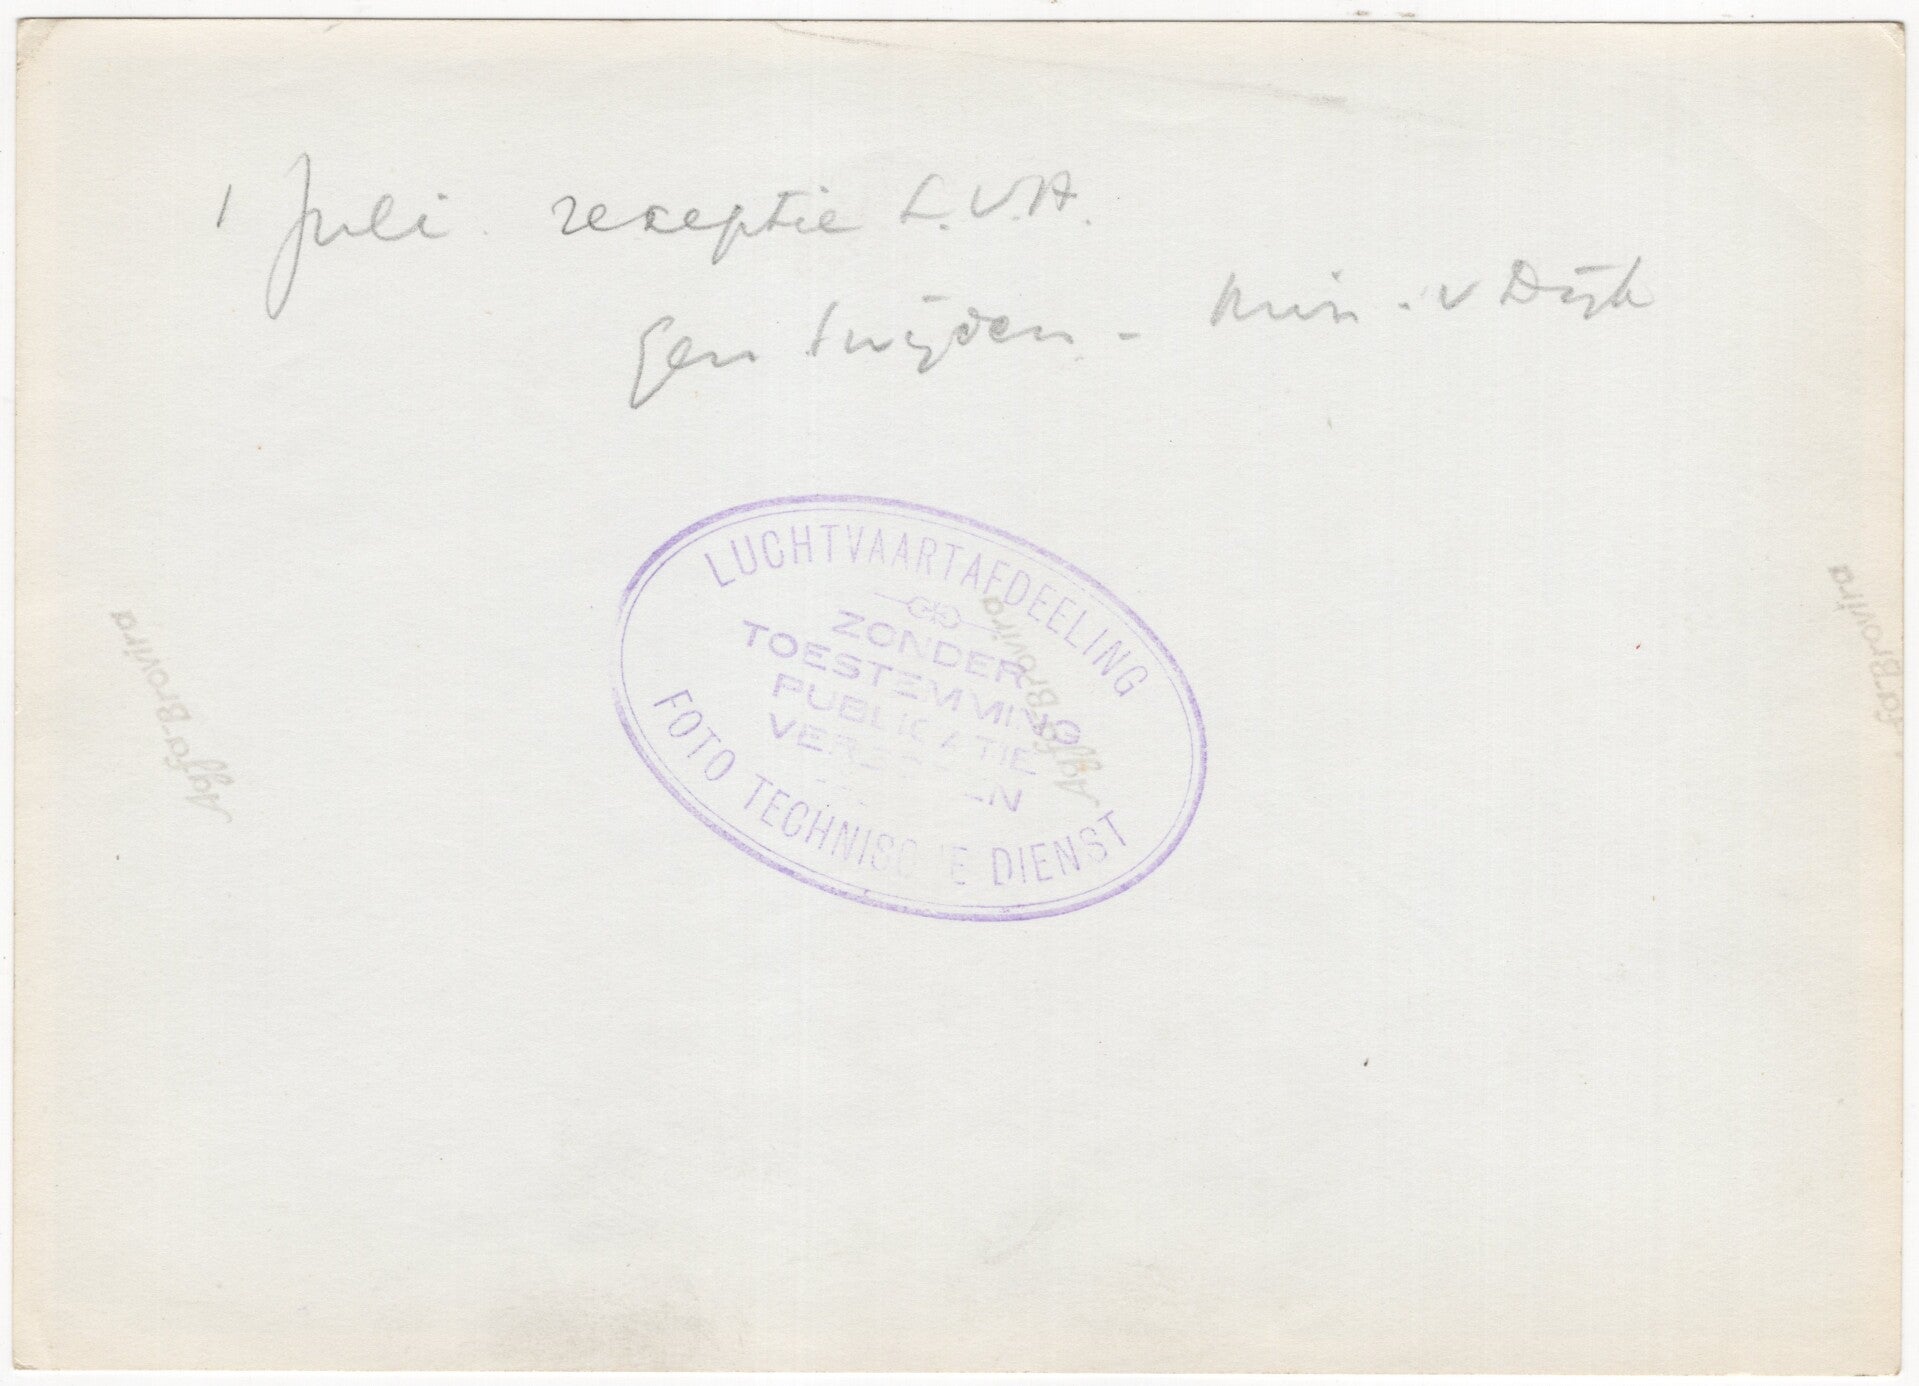 1 Juli. receptie L.V.A.
Gen Swijden - Min. v Dijk
LUCHTVAARTAFDEELING
ZONDER
TOESTEMMING
PUBLICATIE
FOTO TECHNISCHE DIENST
Agfa Brovira
Agfa Brovira
Agfa Brovira